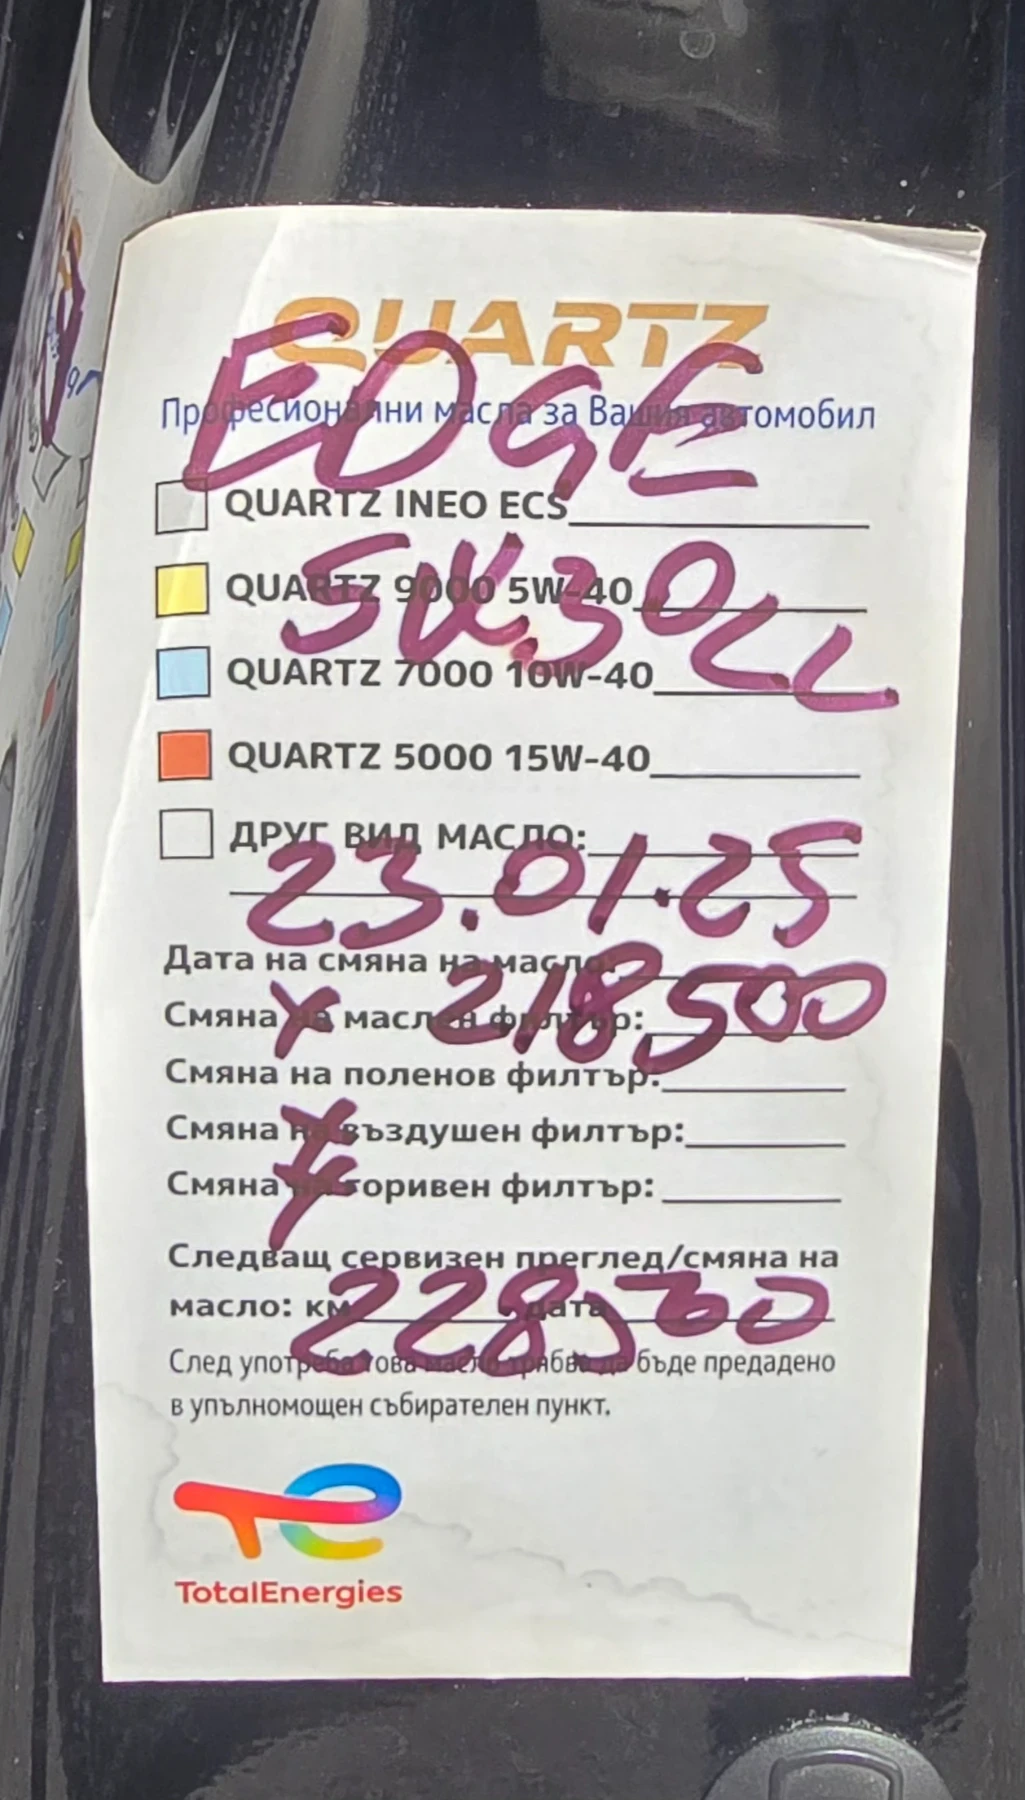 QUARTZ
EDGE
Професионални масла за Вашия автомобил
QUARTZ INEO ECS
5W.30LL
QUARTZ 9000 5W-40
QUARTZ 7000 10W-40
QUARTZ 5000 15W-40
ДРУГ ВИД МАСЛО:
23.01.25
Дата на смяна на масло:
218500
Смяна на маслен филтър:
Смяна на поленов филтър:
Смяна на въздушен филтър:
Смяна на горивен филтър:
Следващ сервизен преглед/смяна на
масло: км дата
228500
След употреба това масло трябва да бъде предадено
в упълномощен събирателен пункт.
TotalEnergies